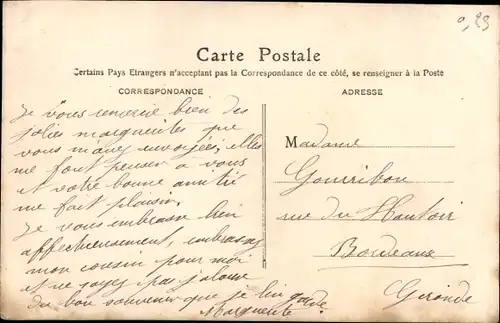 0,25
Carte Postale
Certains Pays Etrangers n'acceptant pas la Correspondance de ce côté, se renseigner à la Poste
CORRESPONDANCE
Je vous remercie bien des
jolies marguerites que
vous m'avez envoyées, elles
me font penser à vous
et votre bonne amitié
me fait plaisir.
Je vous embrasse bien
affectueusement, embrassez
mon cousin pour moi
et ne soyez pas jalouse
du bon souvenir que je lui garde
Marguerite
ADRESSE
Madame
rue du Hautoir
Bordeaux
Gironde